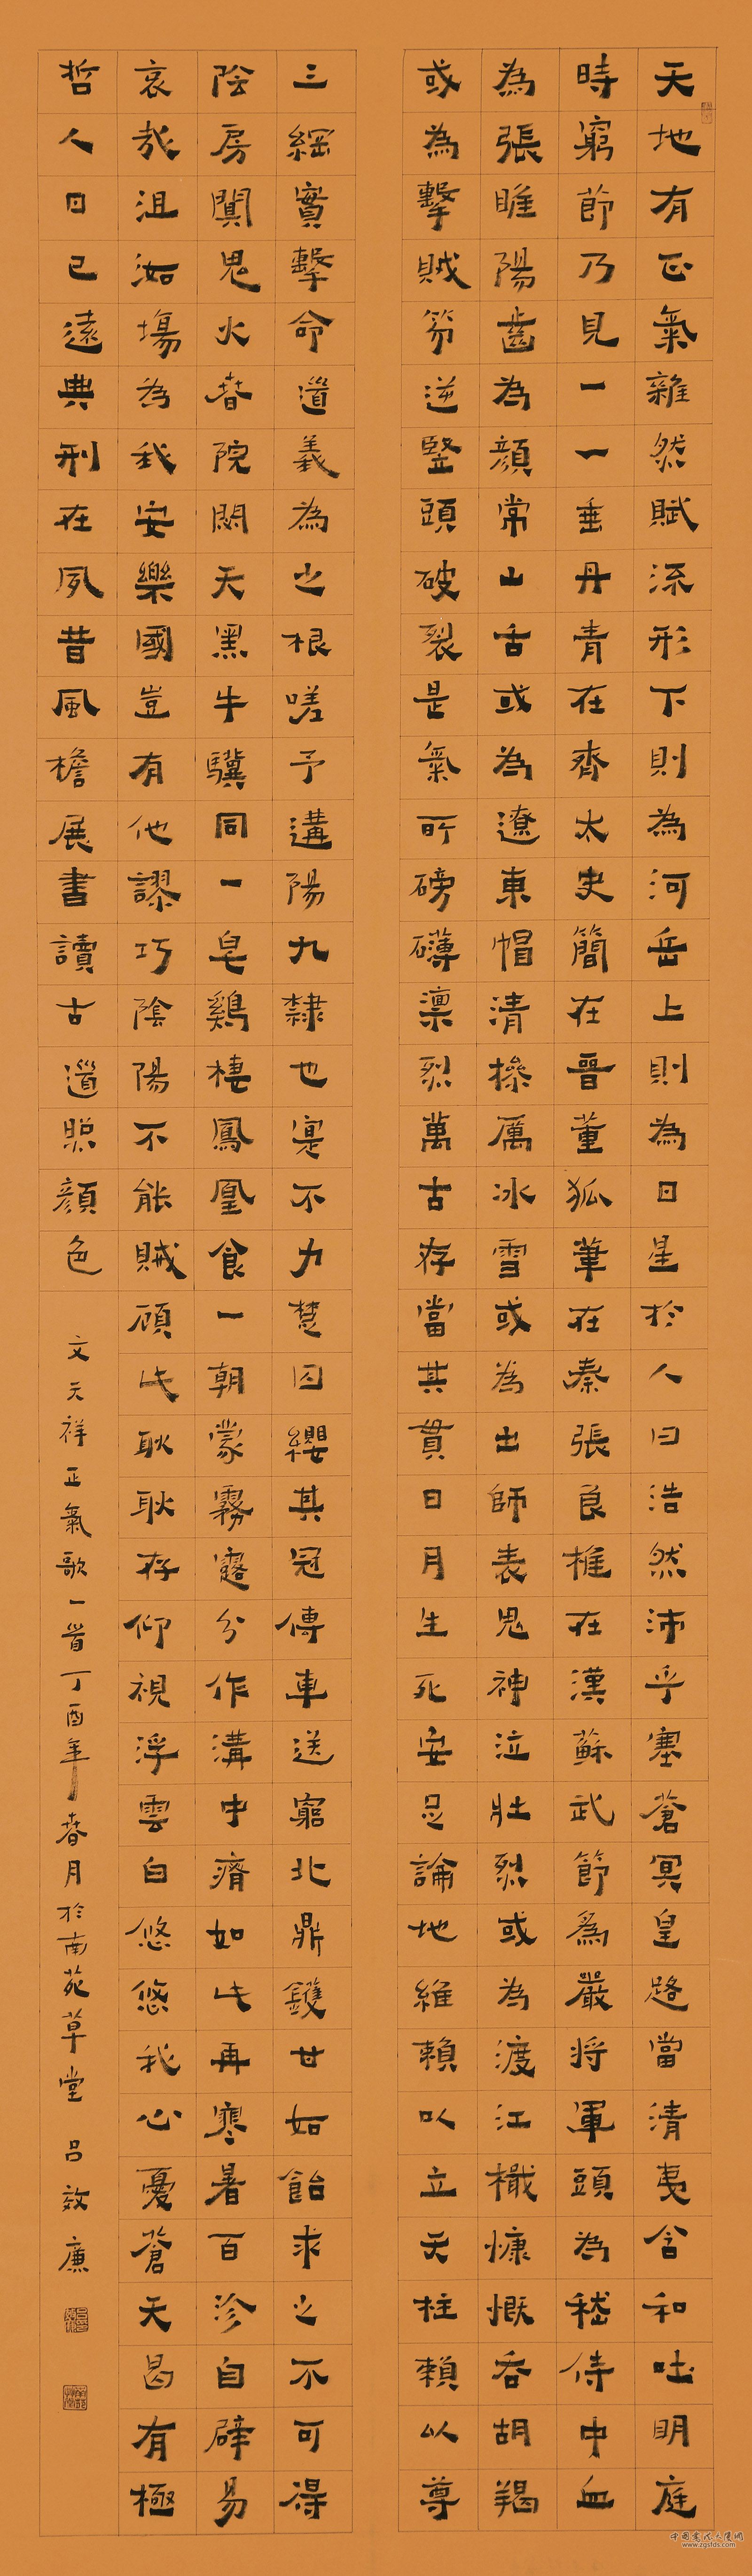 天地有正氣雜然賦流形下則為河岳上則為日星於人曰浩然沛乎塞蒼冥皇路當清夷含和吐明庭
時窮節乃見一一垂丹青在齊太史簡在晉董狐筆在秦張良椎在漢蘇武節為嚴將軍頭為嵇侍中血
為張睢陽齒為顏常山舌或為遼東帽清操厲冰雪或為出師表鬼神泣壯烈或為渡江檝慷慨吞胡羯
或為擊賊笏逆豎頭破裂是氣所磅礴凜烈萬古存當其貫日月生死安足論地維賴以立天柱賴以尊
三綱實擊命道義為之根嗟予遘陽九隸也寔不力楚囚纓其冠傳車送窮北鼎鑊甘如飴求之不可得
陰房闃鬼火春院閟天黑牛驥同一皂鷄棲鳳凰食一朝蒙霧露分作溝中瘠如此再寒暑百沴自辟易
哀哉沮洳場為我安樂國豈有他謬巧陰陽不能賊顧此耿耿存仰視浮雲白悠悠我心憂蒼天曷有極
哲人日已遠典刑在夙昔風檐展書讀古道照顏色
文天祥正氣歌一首丁酉年春月於南苑草堂呂效廉
www.zgsfds.com